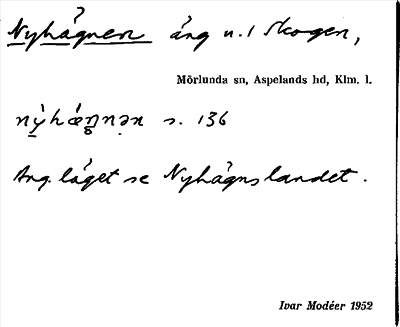 Nyhägnen äng u. / Skogen,
Mörlunda sn, Aspelands hd, Klm. l.
s. 136
Ang. läget se Nyhägnslandet.
Ivar Modéer 1952